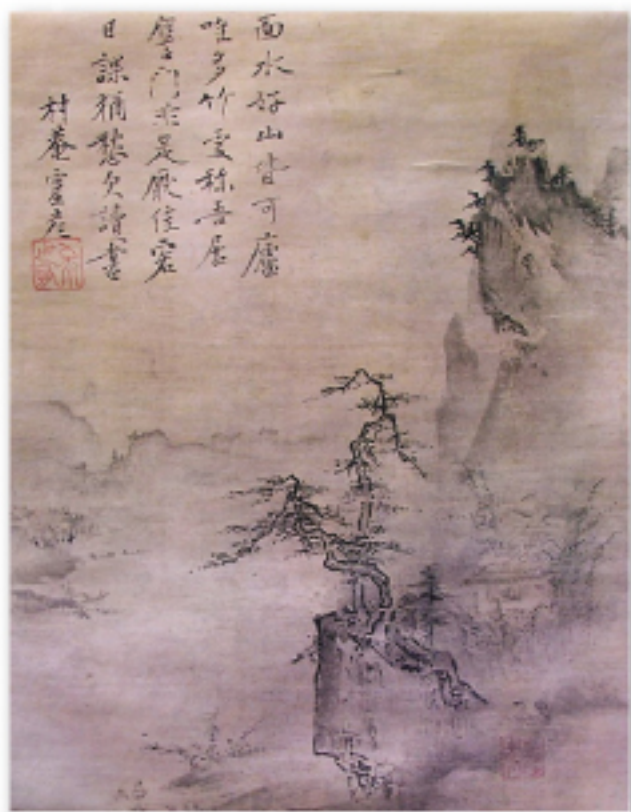 面水好山皆可廬
唯多竹處稱吾居
門是厭佳客
日課猶愁欠讀書
村菴靈彦